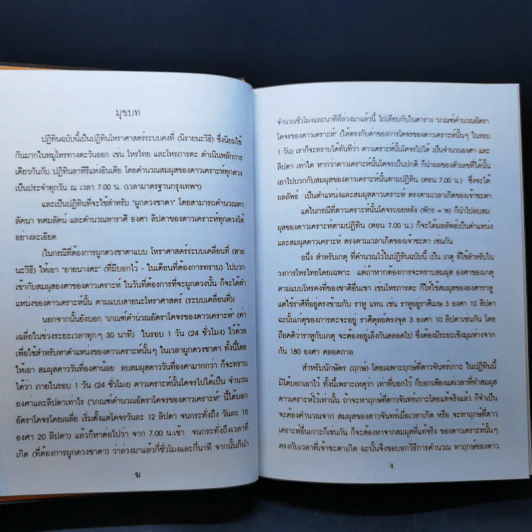 มุขบท
ปฏิทินฉบับนี้เป็นปฏิทินโหราศาสตร์ระบบคงที่ (นิรายนะวิธี) ซึ่งนิยมใช้
กันมากในหมู่โหรทางตะวันออก เช่น โหรไทย และโหรภารตะ ดำเนินหลักการ
เดียวกันกับ ปฏิทินลาหิรีแห่งอินเดีย โดยคำนวณสมผุสของดาวเคราะห์ทุกดวง
เป็นประจำทุกวัน ณ เวลา 7.00 น. (เวลามาตรฐานกรุงเทพฯ)
และเป็นปฏิทินที่จะใช้สำหรับ "ผูกดวงชาตา" โดยสามารถคำนวณหา
ลัคนา ทศมลัคน์ และคำนวณหาราศี องศา ลิปดาของดาวเคราะห์ทุกดวงได้
อย่างละเอียด
(ในกรณีที่ต้องการผูกดวงชาตาแบบ โหราศาสตร์ระบบเคลื่อนที่ (สาย
นะวิธี) ให้เอา "อายานางศะ" (ที่มีบอกไว้ - ในเดือนที่ต้องการทราบ) ไปบวก
เข้ากับสมผุสองศาของดาวเคราะห์ ในวันที่ต้องการที่จะผูกดวงนั้น ก็จะได้ตำ
แหน่งของดาวเคราะห์นั้น ตามแบบสายนะโหราศาสตร์ (ระบบเคลื่อนที่))
นอกจากนั้นยังบอก "เกณฑ์คำนวณอัตราโคจรของดาวเคราะห์" (ค่า
เฉลี่ยในช่วงระยะเวลาทุกๆ 30 นาที) ในรอบ 1 วัน (24 ชั่วโมง) ไว้ด้วย
เพื่อใช้สำหรับหาตำแหน่งของดาวเคราะห์นั้นๆ ในเวลาผูกดวงชาตา ทั้งนี้โดย
ให้เอา สมผุสดาววันที่องศาน้อย ลบสมผุสดาววันที่องศามากกว่า ก็จะทราบ
ได้ว่า ภายในรอบ 1 วัน (24 ชั่วโมง) ดาวเคราะห์นั้นโคจรไปได้เป็น จำนวน
องศาและลิปดาเท่าไร ("เกณฑ์คำนวณอัตราโคจรของดาวเคราะห์" นี้ได้บอก
อัตราโคจรโดยเฉลี่ย เริ่มตั้งแต่โคจรวันละ 12 ลิปดา จนกระทั่งถึง วันละ 15
องศา 20 ลิปดา) แล้วก็หาต่อไปว่า จาก 7.00 น.เช้า จนกระทั่งถึงเวลาที่
เกิด (ที่ต้องการผูกดวงชาตา) ว่าล่วงมาแล้วกี่ชั่วโมงและกี่นาที จากนั้นก็นำ
ฆ
จำนวนชั่วโมงและนาทีที่ล่วงมาแล้วนี้ ไปเทียบกับในตาราง "เกณฑ์คำนวณอัตรา
โคจรของดาวเคราะห์" (ให้ตรงกับค่าของการโคจรของดาวเคราะห์นั้นๆ ในรอบ
1 วัน) เราก็จะทราบได้ทันทีว่า ดาวเคราะห์นั้นโคจรไปได้ เป็นจำนวนองศา และ
ลิปดา เท่าใด หากว่าดาวเคราะห์นั้นโคจรเป็นปกติ ก็นำผลของตัวเลขที่ได้นั้น
เอาไปบวกกับสมผุสของดาวเคราะห์นั้นตามปฏิทิน (ตอน 7.00 น.) ซึ่งจะได้
ผลลัพธ์ เป็นตำแหน่งและสมผุสดาวเคราะห์ ตรงตามเวลาเกิดของเจ้าชะตา
แต่ในกรณีที่ดาวเคราะห์นั้นโคจรถอยหลัง (พักร = พ) ก็นำไปลบสมผุส
ของดาวเคราะห์ตามปฏิทิน (ตอน 7.00 น.) ก็จะได้ผลลัพธ์เป็นตำแหน่ง
และสมผุสดาวเคราะห์ ตรงตามเวลาเกิดของเจ้าชะตา เช่นกัน
อนึ่ง สำหรับเกตุ ที่คำนวณไว้ในปฏิทินฉบับนี้ เป็น เกตุ ที่ใช้สำหรับใน
วงการโหรไทยโดยเฉพาะ แต่ถ้าหากต้องการจะทราบสมผุส องศาของเกตุ
ตามแบบโหรคงที่ของชาติอื่นเขา เช่นโหรภารตะ ก็ให้ใช้สมผุสขององศาราหู
แต่ใช้ราศีที่อยู่ตรงข้ามกับ ราหู แทน เช่น ราหูอยู่ราศีเมษ 3 องศา 10 ลิปดา
ฉะนั้นเกตุของภารตะจะอยู่ ราศีตุลย์ตรงจุด 3 องศา 10 ลิปดาเช่นกัน โดย
ถือคติว่าราหูกับเกตุ จะต้องอยู่เล็งกันตลอดไป ซึ่งต้องมีระยะเชิงมุมห่างจาก
กัน 180 องศา ตลอดกาล
สำหรับนักษัตร (ฤกษ์) โดยเฉพาะฤกษ์ที่ดาวจันทร์เกาะ ในปฏิทินนี้
มิได้บอกเอาไว้ ทั้งนี้เพราะเหตุว่า เท่าที่บอกไว้ ก็บอกเพียงแค่เวลาที่ค่าสมผุส
ดาวเคราะห์ไว้เท่านั้น ถ้าจะหาฤกษ์ที่ดาวจันทร์เกาะโดยแท้จริงแล้ว ก็จำเป็น
จะต้องคำนวณจาก สมผุสของดาวจันทร์เมื่อเวลาเกิด หรือ จะหาฤกษ์ที่ดาว
เคราะห์อื่นเกาะก็เช่นกัน ก็จะต้องหาจากสมผุสที่แท้จริง ของดาวเคราะห์นั้นๆ
ตรงกับเวลาที่เจ้าชะตาเกิด ฉะนั้นจึงขอบอกวิธีการคำนวณ หาฤกษ์ของดาว